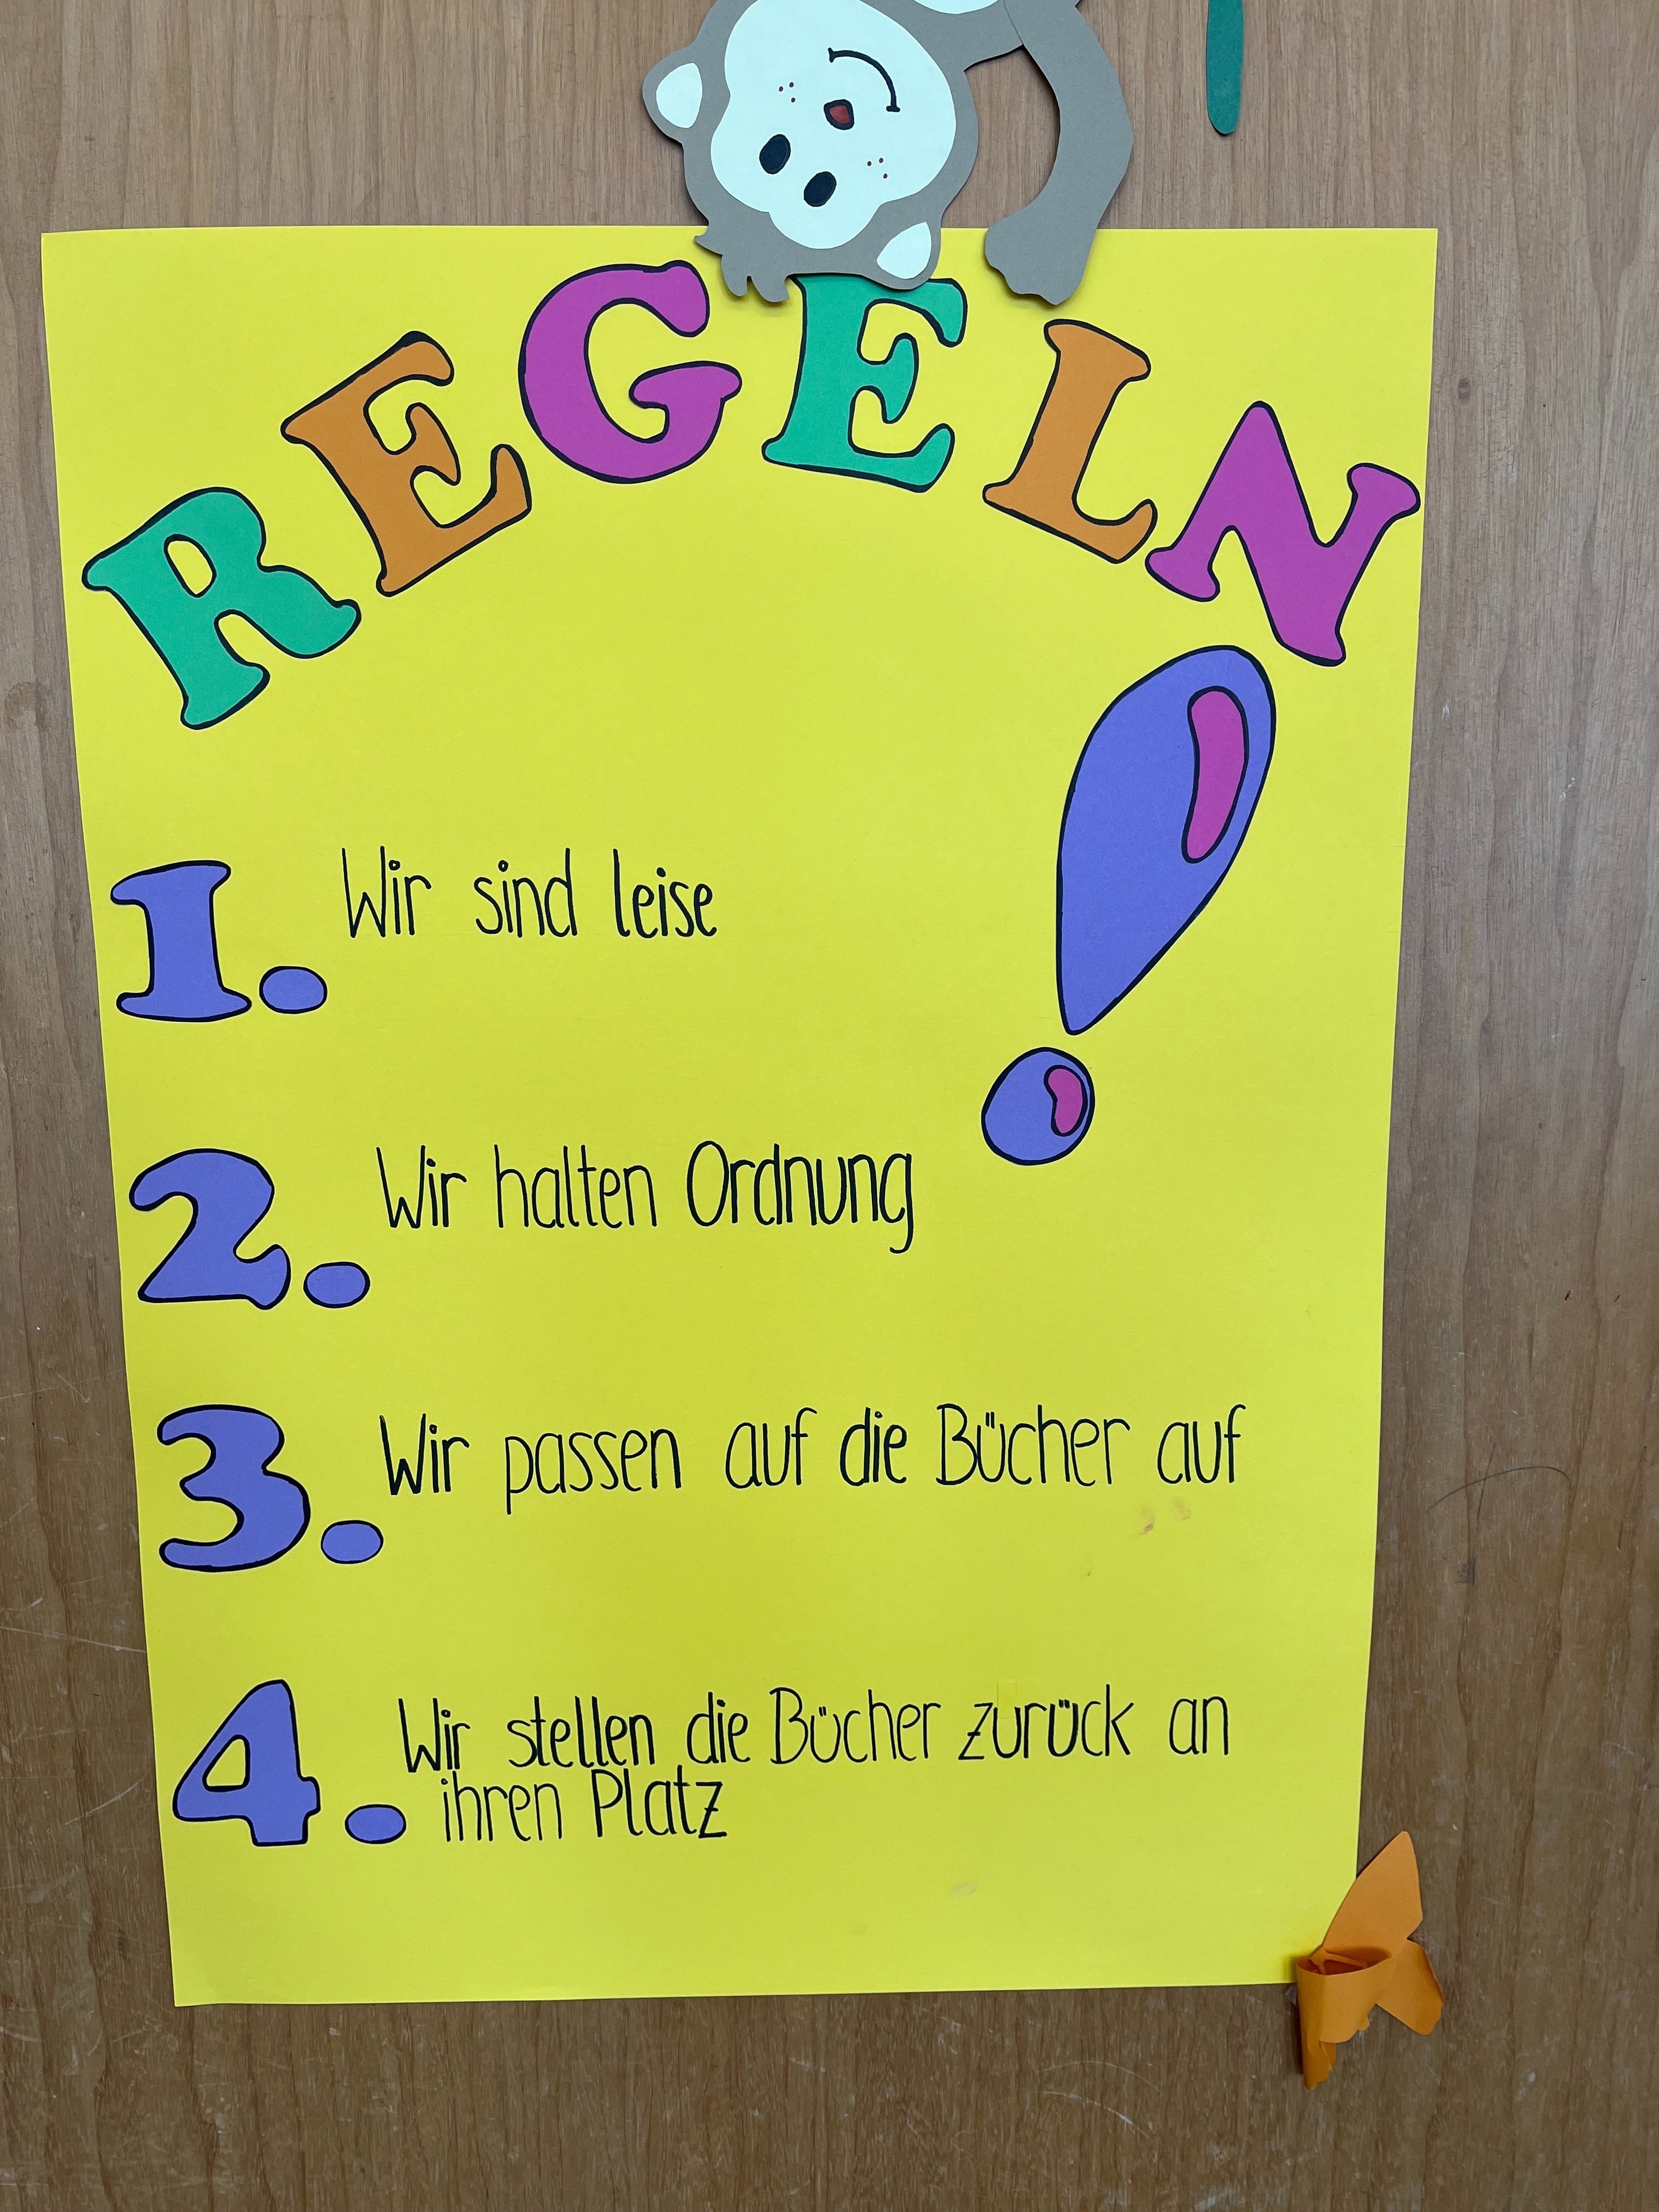 REGELN!
1. Wir sind leise
2. Wir halten Ordnung
3. Wir passen auf die Bücher auf
4. Wir stellen die Bücher zurück an
ihren Platz